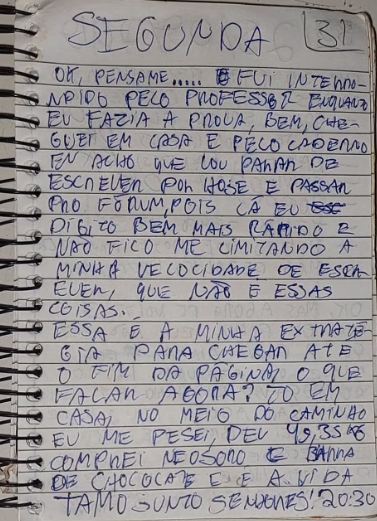 SEGUNDA 31
OK, PENSAME..... E FUI INTERRO-
NPIDO PELO PROFESSOR ENQUANTO
EU FAZIA A PROVA, BEM, CHE-
GUEI EM CASA E PELO CADERNO
EU ACHO QUE VOU PARAR DE
ESCREVER POR HOJE E PASSAR
PRO FÓRUM, POIS LÁ EU
DIGITO BEM MAIS RÁPIDO E
NÃO FICO ME LIMITANDO A
MINHA VELOCIDADE DE ESCR-
EVER, QUE NÃO É ESSAS
COISAS.
ESSA É A MINHA EXTRATE-
GIA PARA CHEGAR ATÉ
O FIM DA PÁGINA, O QUE
FALAR AGORA? TO EM
CASA, NO MEIO DO CAMINHO
EU ME PESEI, DEU 49,35 KG
COMPREI NEOSORO E BARRA
DE CHOCOLATE E É A VIDA
TAMO JUNTO SENHORES! 20:30